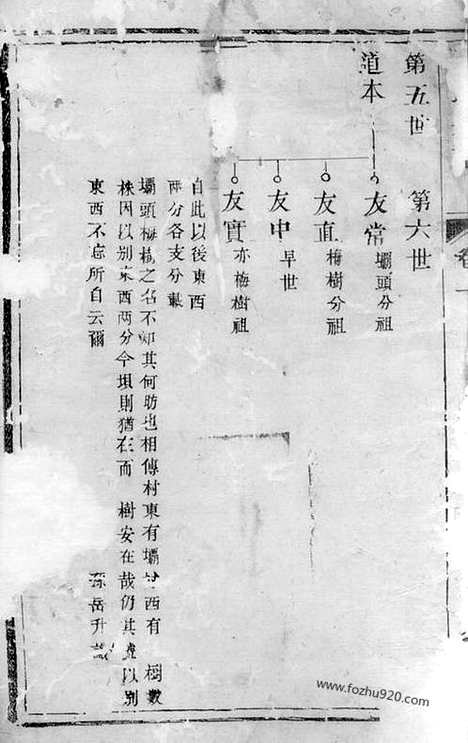 第五世　第六世
道本
友常　壩頭分祖
友直　梅樹分祖
友中　早世
友實　亦梅樹祖
自此以後東西
兩分各支分載
壩頭梅樹之名不知其何昉也相傳村東有壩村西有　樹數
株因以別東西兩分今壩則猶在而　樹安在哉仍其舊以別
東西不忘所自云爾
孫岳升
www.fozhu920.com